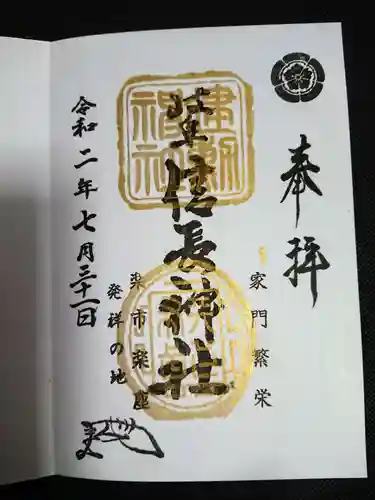 奉拝
家門繁栄
建勲
神社
信長神社
楽市楽座
発祥の地
令和二年七月三十一日